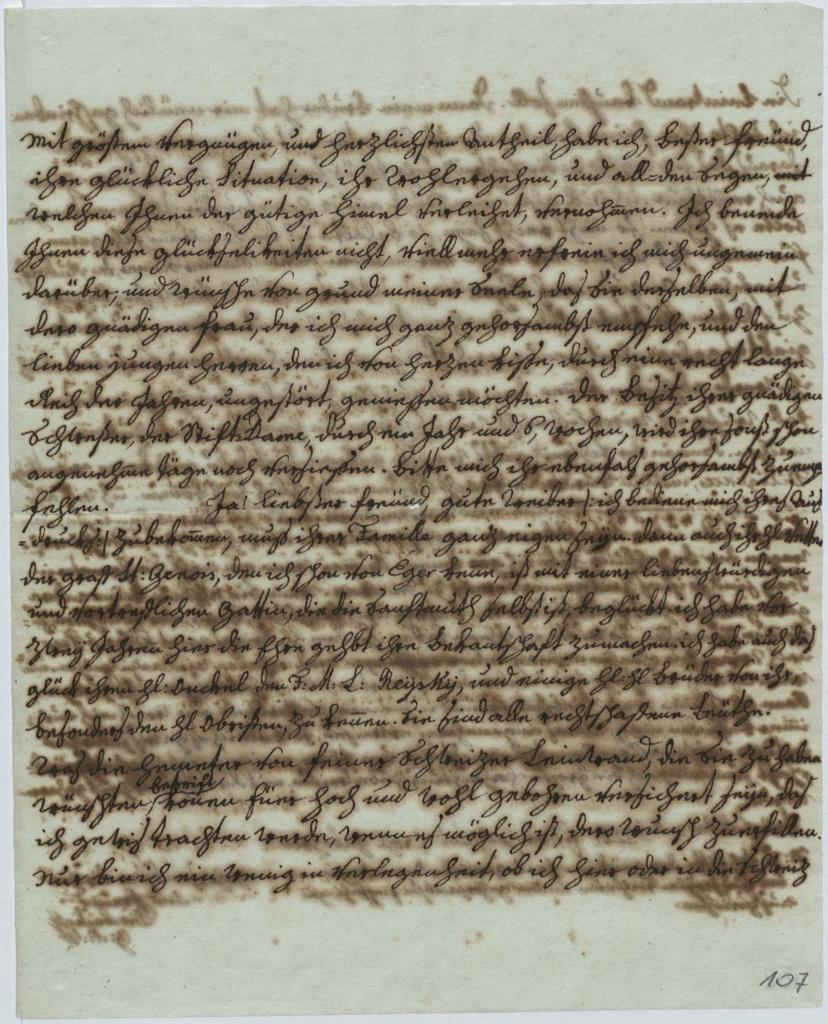 Mit größtem Vergnügen, und herzlichsten Antheil, habe ich, bester freünd,
ihre glückliche Situation, ihr Wohlergehen, und all=den Segen, mit
welchen Ihnen der gütige Himel verleihet, vernohmen. Ich beneide
Ihnen diese glückseligkeiten nicht, viellmehr erfreie ich mich ungemein
darüber; und wünsche von grund meiner Seele, daß Sie derselben, mit
dero gnädigen frau, der ich mich ganz gehorsambst empfehe, und den
lieben jungen herren, den ich von herzen küsse, durch eine recht lange
Reih der Jahren, ungestört, geniessen möchten. Der besitz ihrer gnädigen
Schwester, der Stift-Dame, durch ein Jahr und 6 wochen, wird ihre sonst schon
angenehme täge noch versiessen. bitte mich ihr ebenfals gehorsambst zu emp
fehlen. Ja! liebster freünd, gute Weiber /: ich bediene mich ihres Aus
=drucks :/ zu bekommen, muß ihrer Familie ganz eigen seyn. dann auch ihr hl Vetter
der graff St: Genois, den ich schon von Eger kenne, ist mit einer liebenswürdigen
und vortreflichen Gattin, die die Sanftmuth selbst ist, beglückt. ich habe vor
zwey Jahren hier die Ehre gehbt ihre bekantschaft zu machen. ich habe auch das
glück ihren hl: Onckel den F: M: L: Reysky, und einige hl: hl: brüder von ihr,
besonders den hl Obristen, zu kennen. Sie sind alle rechtschaffene Leüthe.
Was die hemeter von feiner Schweizer Leinwand, die Sie zu haben
wünschten betrift können Euer hoch und wohl gebohren versichert seyn, daß
ich gewis trachten werde, wenn es möglich ist, dero wunsch zu erfüllen.
Nur bin ich ein wenig in verlegenheit, ob ich hier oder in die Schweiz
107